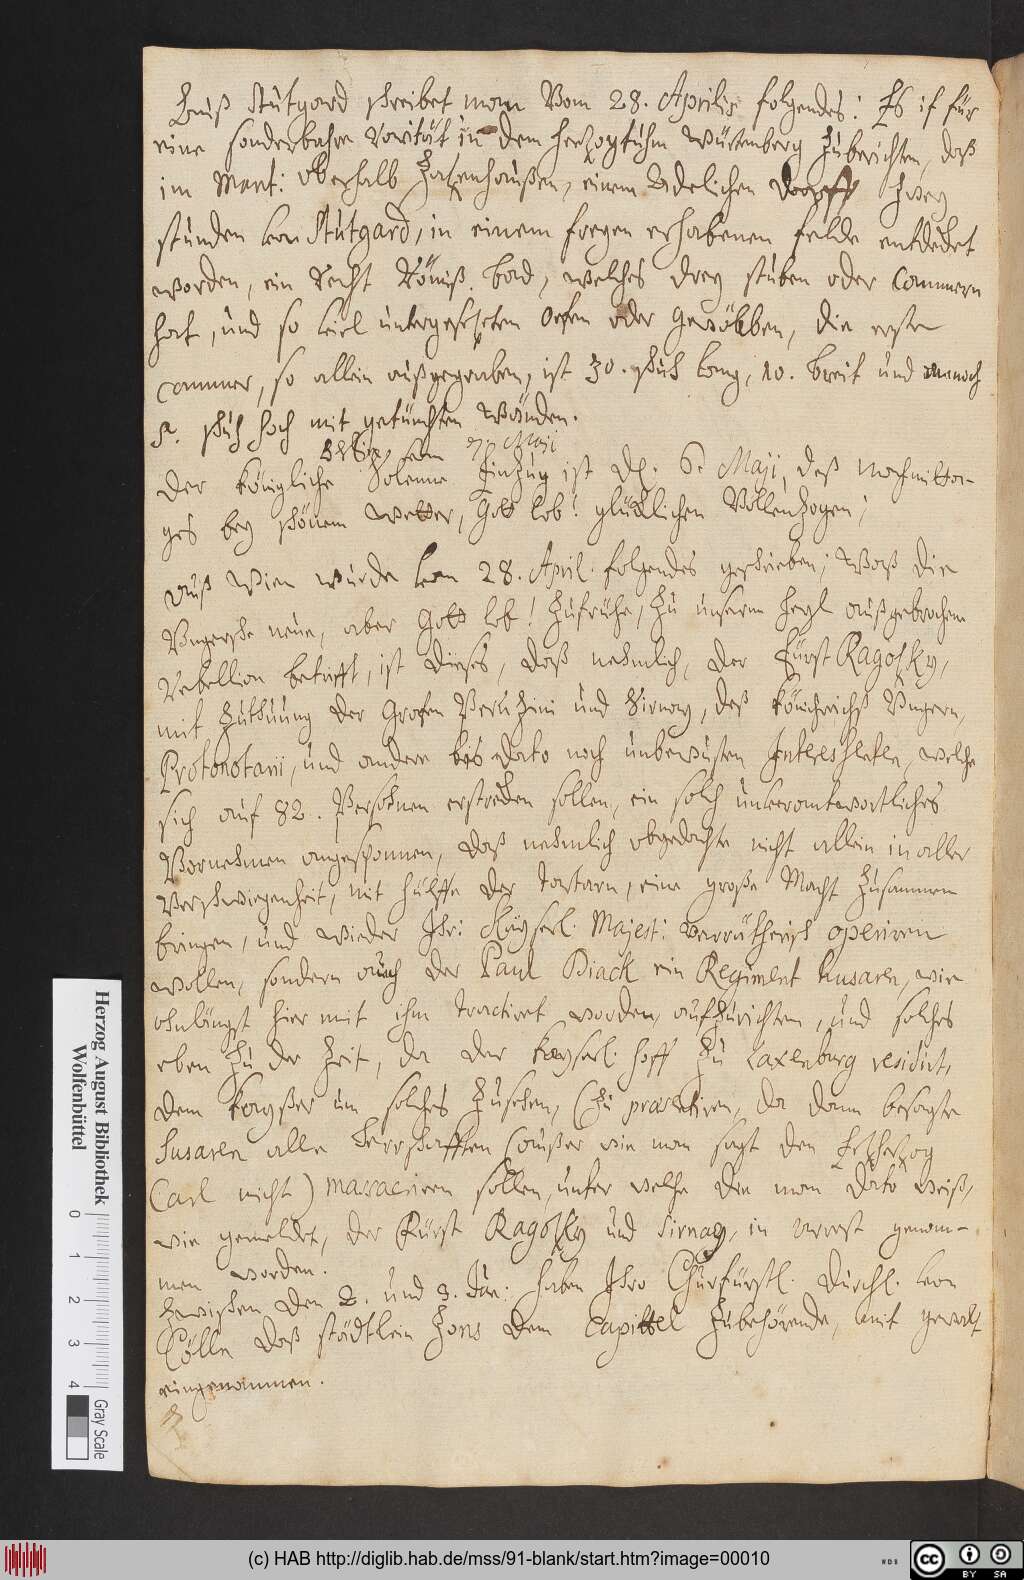 Auß Stutgard schreibet man Vom 28. Aprilis folgendes: Es ist für
eine sonderbahre rarität in dem Herzogtuhm Würtenberg zuberichten, daß
im Mart: oberhalb Zatzenhaußen, einem Adelichen Dorff zwey
stunden von Stutgard, in einem freyen erhabenen felde entdecket
worden, ein Recht Römisch bad, welches drey stuben oder Cammern
hat, und so viel untergesetzten Oefen oder Gewölben, die erste
Cammer, so allein außgegraben, ist 30. schuh lang, 10. breit und annoch
8. schuh hoch mit getünchten Wänden.
Berlin, vom 7. Maji
Der königliche Solenne Einzug ist d. 6. Maji, deß nachmitta-
ges bey schönem wetter, Gott lob! glücklichen Vollenzogen;
auß Wien wurde vom 28. April. folgendes geschrieben; Waß die
Ungersche neue, aber Gott lob! Zufrühe, zu unserem heyl außgebrochene
Rebellion betrifft, ist dieses, daß nehmlich, der Fürst Ragotzky,
mit zuthuung der Grafen und Sirnay, deß Königreichß Ungern,
Protonotarii, und andere bis dato noch unbewusten welche
sich auf 82. Persohnen erstrecken sollen, ein solch unverantwortliches
Vornehmen angesponnen, daß nehmlich obgedachte nicht allein in aller
Verschwiegenheit, mit hülffe der Tartarn, eine große Macht zusammen
bringen, und wieder Ihr: Kayserl. Majest: verrätherisch operiren
wollen, sondern auch der Paul Diack ein Regiment husaren, wie
ohnlängst hier mit ihm tractiret worden, aufzurichten, und solches
eben zu der Zeit, da der kayserl. hoff zu Laxenburg residirt,
dem Kayßer um solches zusehen, (zu da dann besagte
husaren alle Herrschafften (außer wie man sagt den Ertzherzog
Carl nicht) massacriren sollen, unter welche den man dato weiß,
wie gemeldet, der Fürst Ragotzky und Sirnay, in arrest genom-
men worden.
Zwischen den 2. und 3. haben Ihro Churfürstl. Durchl. von
Cölln daß städtlein Zons dem Capittel zubehörende, mit gewalt
eingenommen.
Herzog August Bibliothek
Wolfenbüttel
0 1 2 3 4
Gray Scale
(c) HAB http://diglib.hab.de/mss/91-blank/start.htm?image=00010
WDB
CC BY SA